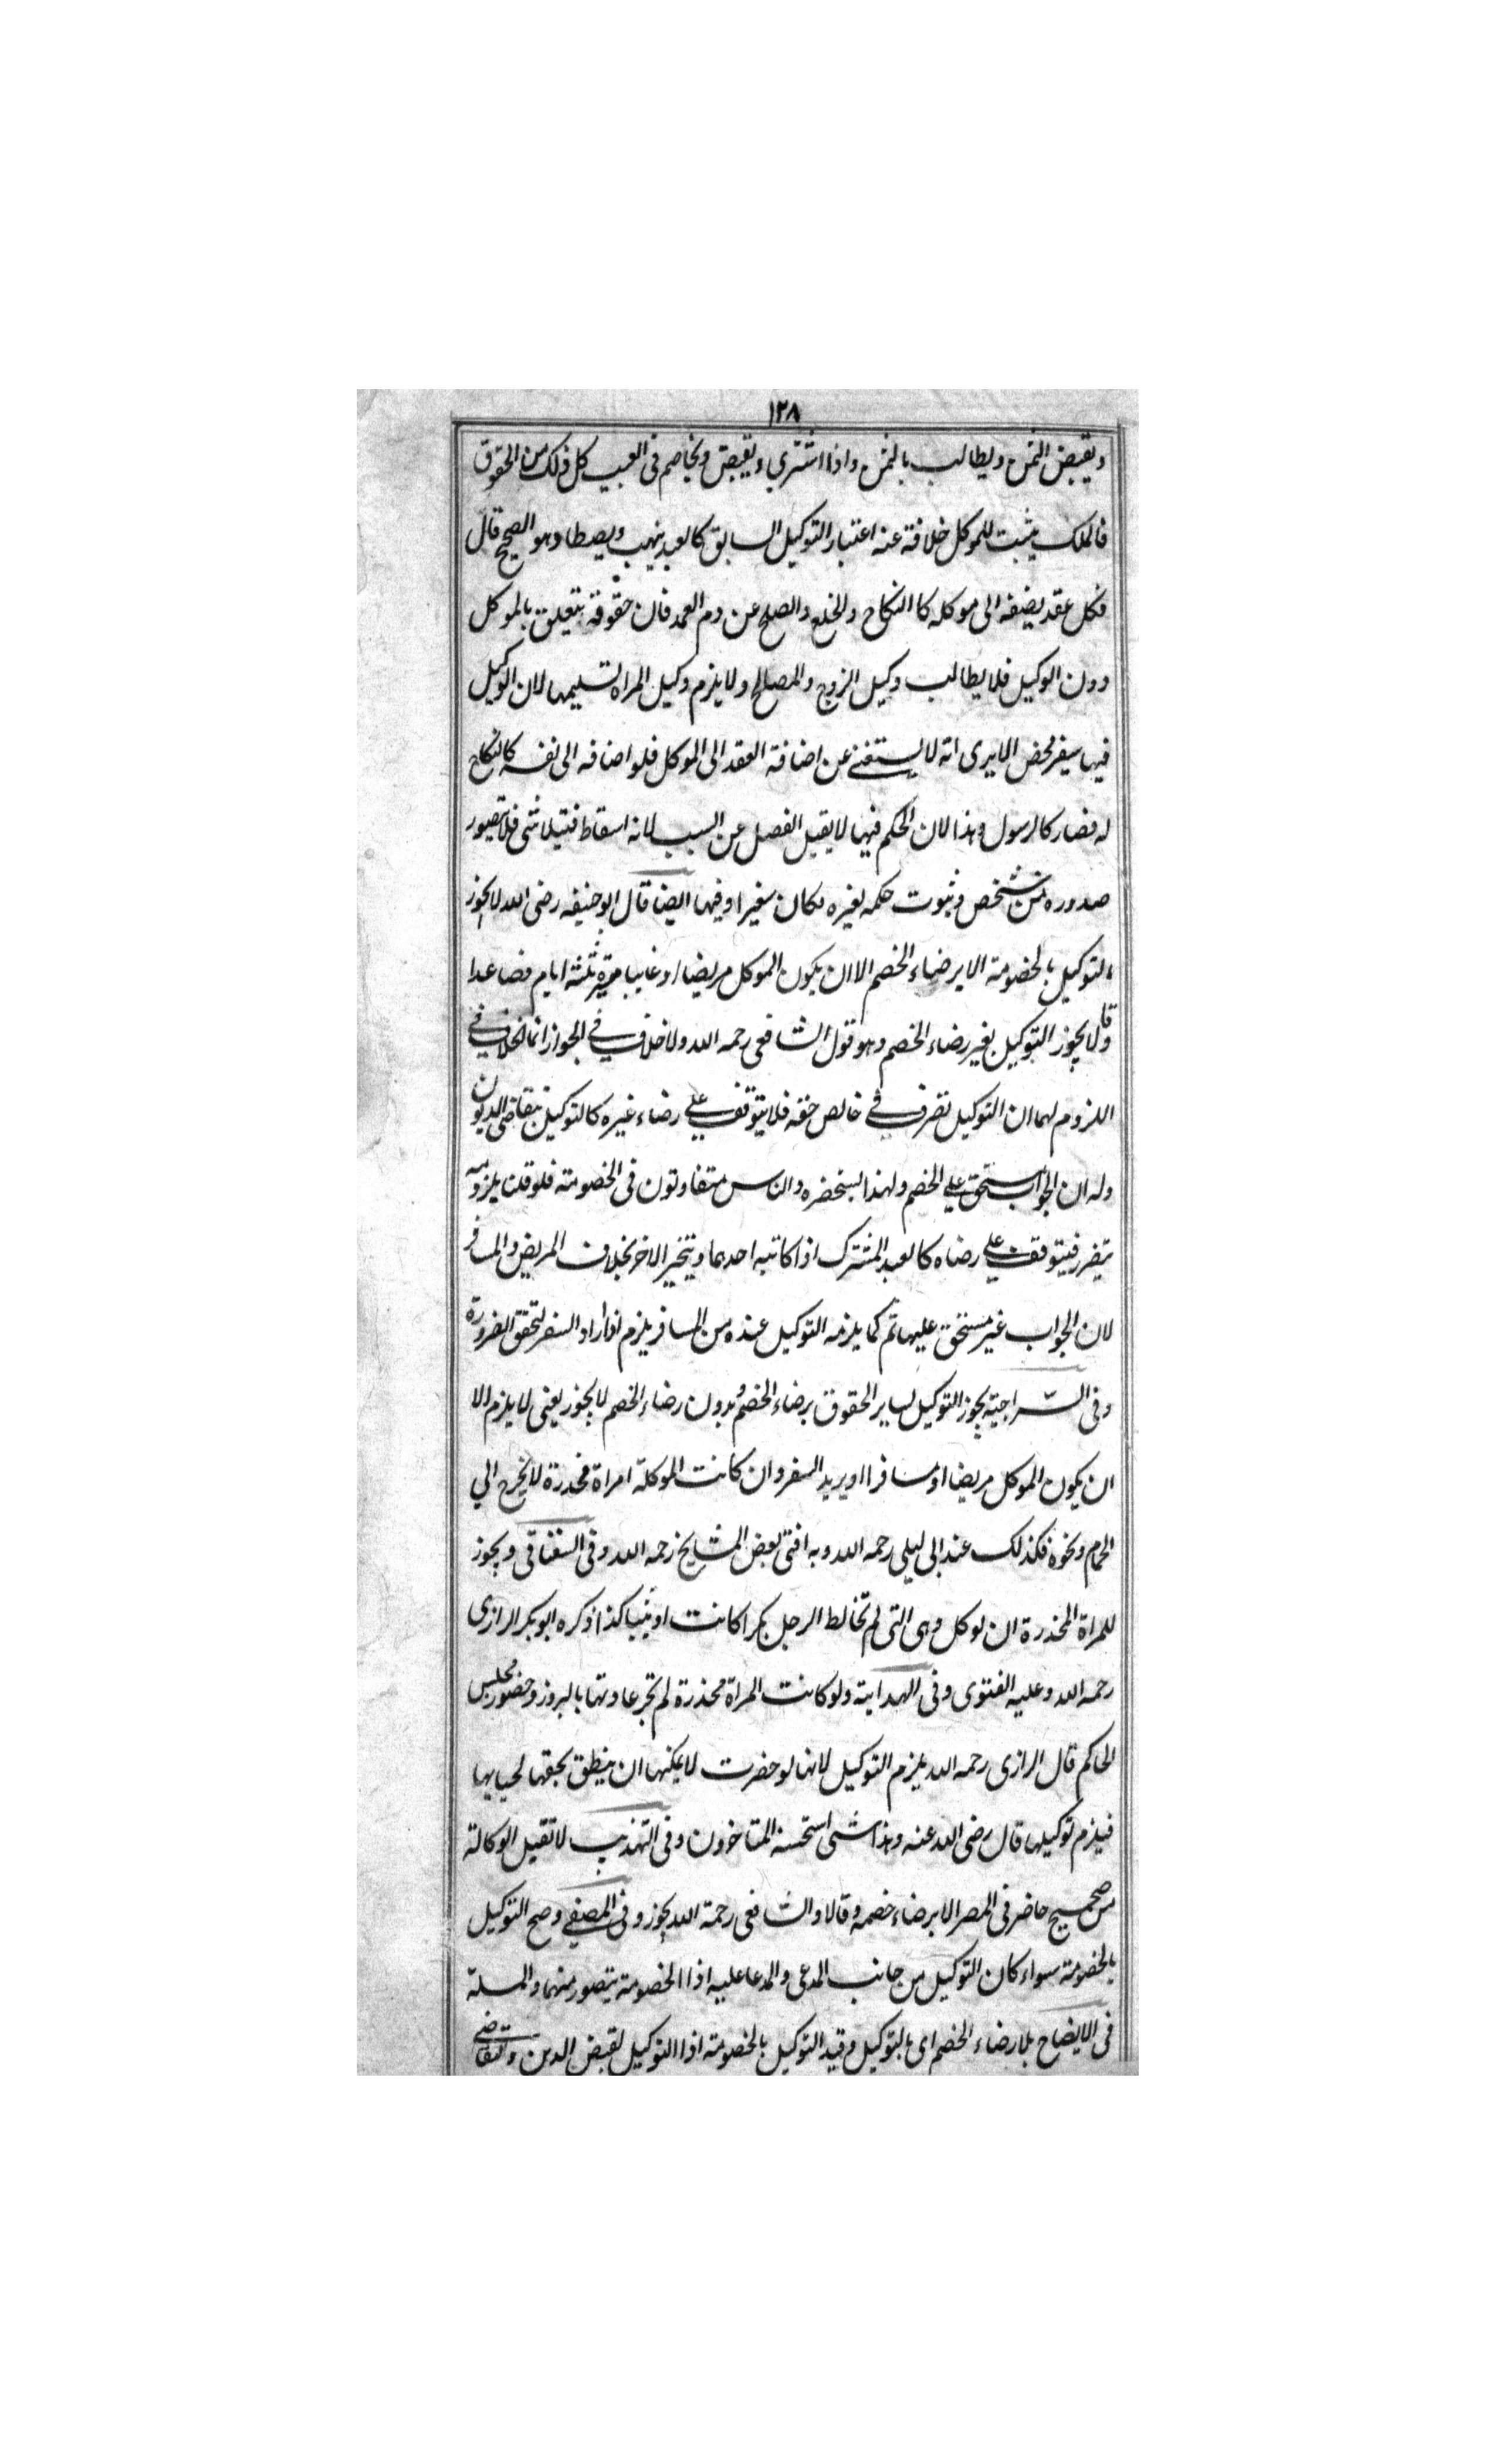 ١٢٨
ويقبض الثمن ويطالب بالثمن واذا اشتري ويقبض ويخاصم فى العيب كل ذلك من الحقوق
فالملك يثبت للموكل خلافة عنه اعتبار التوكيل السابق كالعبد يتهب ويصطاد وهو الصحيح قال
فكل عقد يضيفه الى موكله كا النكاح والخلع والصلح عن دم العمد فان حقوقه يتعلق بالموكل
دون الوكيل فلا يطالب وكيل الزوج والمصالح ولا يلزم وكيل المراة تسليمها لان الوكيل
فيها سفير محض الا يرى انه لا يستغنے عن اضافة العقد الى الموكل فلو اضافه الى نفسه كا النكاح
له فصار كالرسول وهذا لان الحكم فيها لا يقبل الفصل عن السبب لانه اسقاط فيتلاشى فلا يتصور
صدوره من شخص وثبوت حكمه لغيره فكان سفيرا وفيها ايضا قال ابو حنيفه رضى الله لا يجوز
التوكيل بالخصومة الا برضاء الخصم الا ان يكون الموكل مريضا او غايبا ثلثة ايام فصاعدا
وقالا يجوز التوكيل بغير رضاء الخصم وهو قول الشافعى رحمه الله ولا خلاف فے الجواز انما الخلاف فے
اللزوم لهما ان التوكيل تصرف فے خالص حقه فلا يتوقف علے رضاء غيره كالتوكيل بتقاضى الديون
وله ان الجواب مستحق علے الخصم ولهذا يستحضره والناس متفاوتون فى الخصومة فلو قلنا بلزومه
يتضرر فيتوقف علے رضاه كالعبد المشترك اذا كاتبه احدهما ويتخير الاخر بخلاف المريض والمسافر
لان الجواب غير مستحق عليهما ثم كما يلزمه التوكيل عنده من المسافر يلزم اذا اراد السفر لتحقق الضرورة
وفى السراجية يجوز التوكيل لساير الحقوق برضاء الخصم وبدون رضاء الخصم لا يجوز يعنى لا يلزم الا
ان يكون الموكل مريضا او مسافرا او يريد السفر وان كانت الموكلة امراة مخدرة لا يخرج الي
الحمام ونحوه فكذلك عند ابى ليلى رحمه الله وبه افتى بعض المشايخ رحمه الله وفى السغناقى ويجوز
للمراة المخدرة ان توكل وهى التى لم تخالط الرجل بكرا كانت او ثيبا كذا ذكره ابو بكر الرازى
رحمه الله وعليه الفتوى وفى الهداية ولو كانت المراة مخدرة لم تجر عادتها بالبروز وحضور مجلس
الحاكم قال الرازى رحمه الله يلزم التوكيل لانها لو حضرت لا يمكنها ان ينطق بحقها لحيايها
فيلزم توكيلها قال رضى الله عنه وهذا شى استحسنه المتاخرون وفى التهذيب لا تقبل الوكالة
من صحيح حاضر فى المصر الا برضاء خصمه وقالا والشافعى رحمة الله يجوز وفى المصفے وصح التوكيل
بالخصومة سواء كان التوكيل من جانب المدعى والمدعا عليه اذا الخصومة يتصور منهما والمسلة
فى الايضاح بلا رضاء الخصم اى بالتوكيل وقيد التوكيل بالخصومة اذا التوكيل لقبض الدين والتقاضى